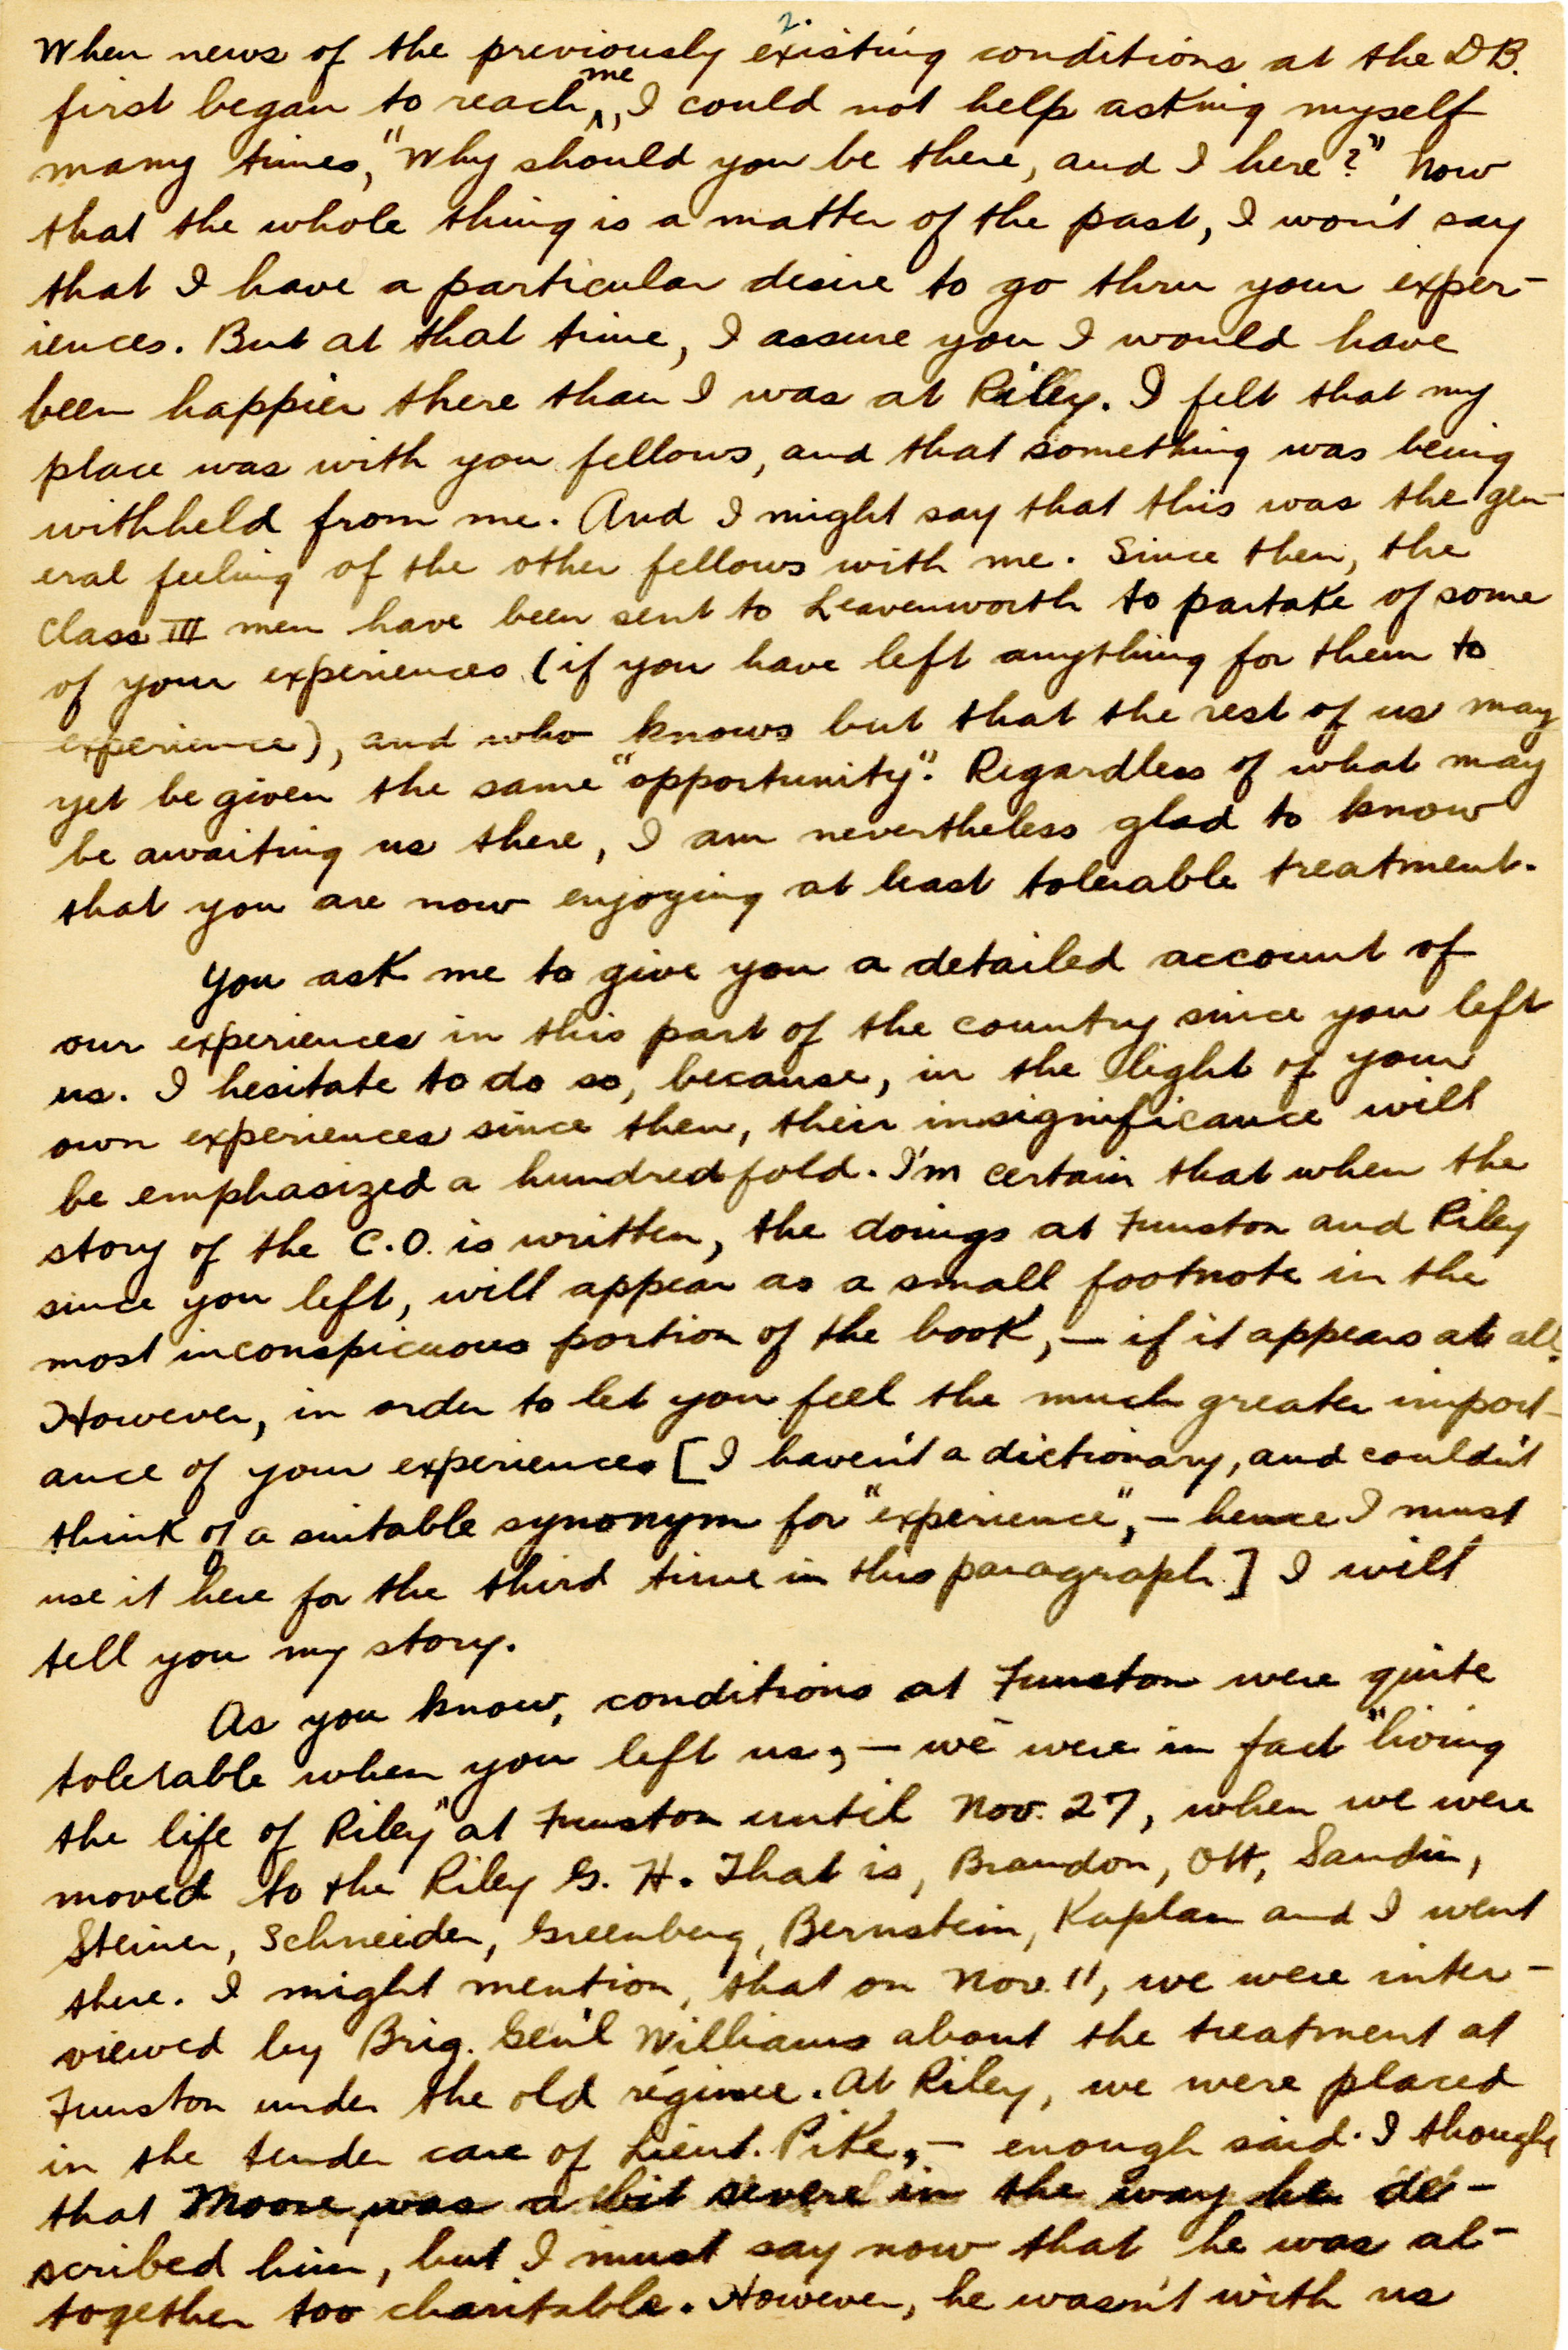 2.
When news of the previously existing conditions at the DB.
first began to reach me, I could not help asking myself
many times, "Why should you be there, and I here?" Now
that the whole thing is a matter of the past, I won't say
that I have a particular desire to go thru your exper-
iences. But at that time, I assure you I would have
been happier there than I was at Riley. I felt that my
place was with you fellows, and that something was being
withheld from me. And I might say that this was the gen-
eral feeling of the other fellows with me. Since then, the
Class III men have been sent to Leavenworth to partake of some
of your experiences (if you have left anything for them to
experience), and who knows but that the rest of us may
yet be given the same "opportunity". Regardless of what may
be awaiting us there, I am nevertheless glad to know
that you are now enjoying at least tolerable treatment.
You ask me to give you a detailed account of
our experiences in this part of the country since you left
us. I hesitate to do so, because, in the light of your
own experiences since then, their insignificance will
be emphasized a hundredfold. I'm certain that when the
story of the C.O. is written, the doings at Funston and Riley
since you left, will appear as a small footnote in the
most inconspicuous portion of the book, — if it appears at all.
However, in order to let you feel the much greater import-
ance of your experiences [I haven't a dictionary, and couldn't
think of a suitable synonym for "experience", — hence I must
use it here for the third time in this paragraph.] I will
tell you my story.
As you know, conditions at Funston were quite
tolerable when you left us, — we were in fact "living
the life of Riley" at Funston until Nov. 27, when we were
moved to the Riley G. H. That is, Brandon, Ott, Sandin,
Steiner, Schneider, Greenberg, Bernstein, Kaplan and I went
there. I might mention, that on Nov. 11, we were inter-
viewed by Brig. Gen'l Williams about the treatment at
Funston under the old régime. At Riley, we were placed
in the tender care of Lieut. Pike, — enough said. I thought
that Moore was a bit severe in the way he de-
scribed him, but I must say now that he was al-
together too charitable. However, he wasn't with us